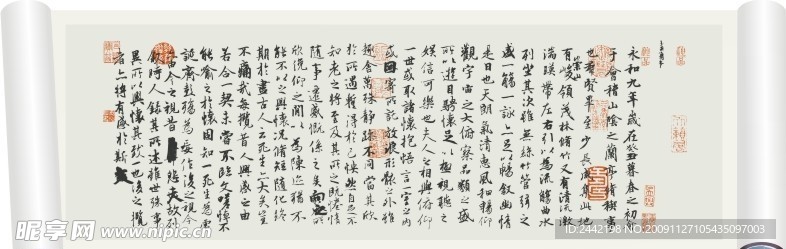 永和九年歲在癸丑暮春之初會
于會稽山陰之蘭亭脩稧事
也群賢畢至少長咸集此地
有崇山峻領茂林脩竹又有清流激
湍暎帶左右引以為流觴曲水
列坐其次雖無絲竹管弦之
盛一觴一詠亦足以暢敘幽情
是日也天朗氣清惠風和暢仰
觀宇宙之大俯察品類之盛
所以遊目騁懷足以極視聽之
娛信可樂也夫人之相與俯仰
一世或取諸懷抱悟言一室之內
或因寄所託放浪形骸之外雖
趣舍萬殊靜躁不同當其欣
於所遇暫得於己怏然自足不
知老之將至及其所之既惓情
隨事遷感慨係之矣向之所
欣俛仰之閒以為陳跡猶不
能不以之興懷況脩短隨化終
期於盡古人云死生亦大矣豈
不痛哉每攬昔人興感之由
若合一契未嘗不臨文嗟悼不
能喻之於懷固知一死生為虛
誕齊彭殤為妄作後之視今
亦由今之視昔悲夫故列
敘時人錄其所述雖世殊事
異所以興懷其致一也後之攬
者亦將有感於斯文
昵享网 www.nipic.cn
ID:2442198 NO:20091127105435097003